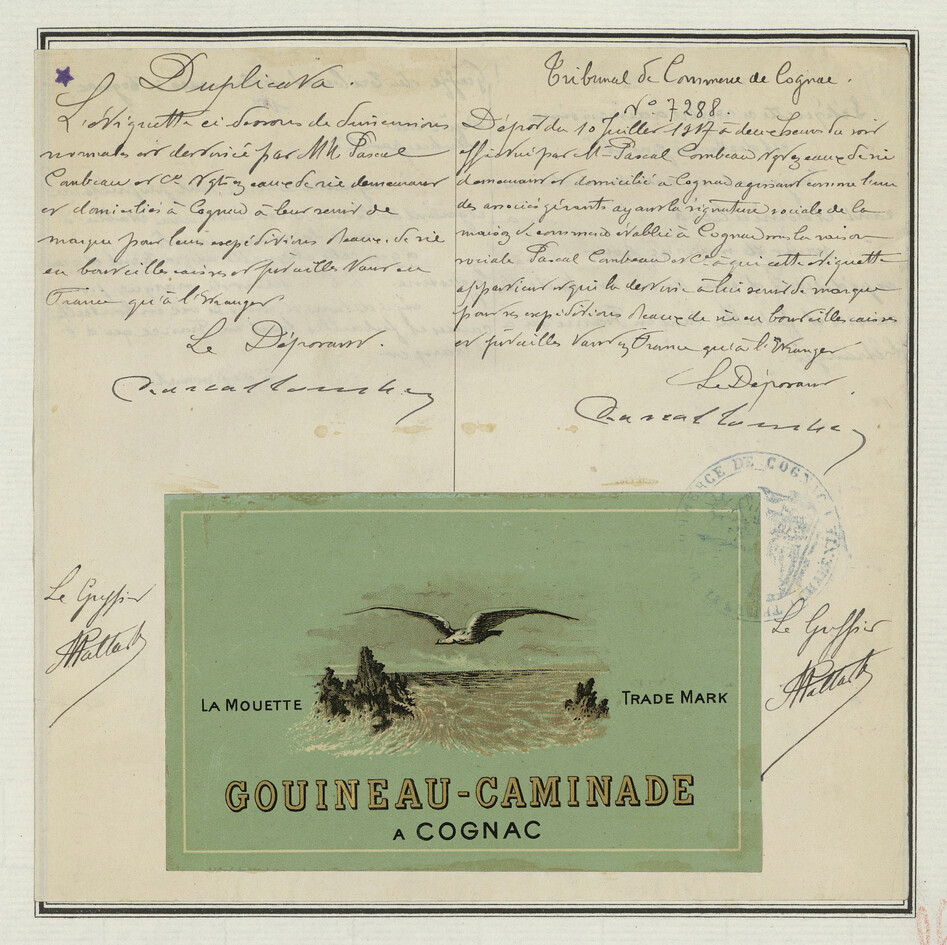 Duplicata.
L'étiquette ci dessous de dimensions
normales est destinée par MM Pascal
Combeau et Cie Ngts eaux de vie demeurant
et domiciliés à Cognac à leur servir de
marque pour leurs expéditions d'eaux-de-vie
en bouteilles caisses et futailles tant en
France qu'à l'étranger
Le Déposant.
Pascal Combeau
Tribunal de Commerce de Cognac.
N° 7288.
Dépôt du 10 Juillet 1917 à deux heures du soir
effectué par Mr Pascal Combeau Ngt eaux de vie
demeurant et domicilié à Cognac agissant comme l'un
des associés gérants ayant la signature sociale de la
maison de commerce établie à Cognac sous la raison
sociale Pascal Combeau et Cie à qui cette étiquette
appartient et qui la destine à lui servir de marque
pour ses expéditions d'eaux de vie en bouteilles caisses
et futailles tant en France qu'à l'étranger
Le Déposant
Pascal Combeau
Le Greffier
Le Greffier
LA MOUETTE
TRADE MARK
GOUINEAU-CAMINADE
A COGNAC